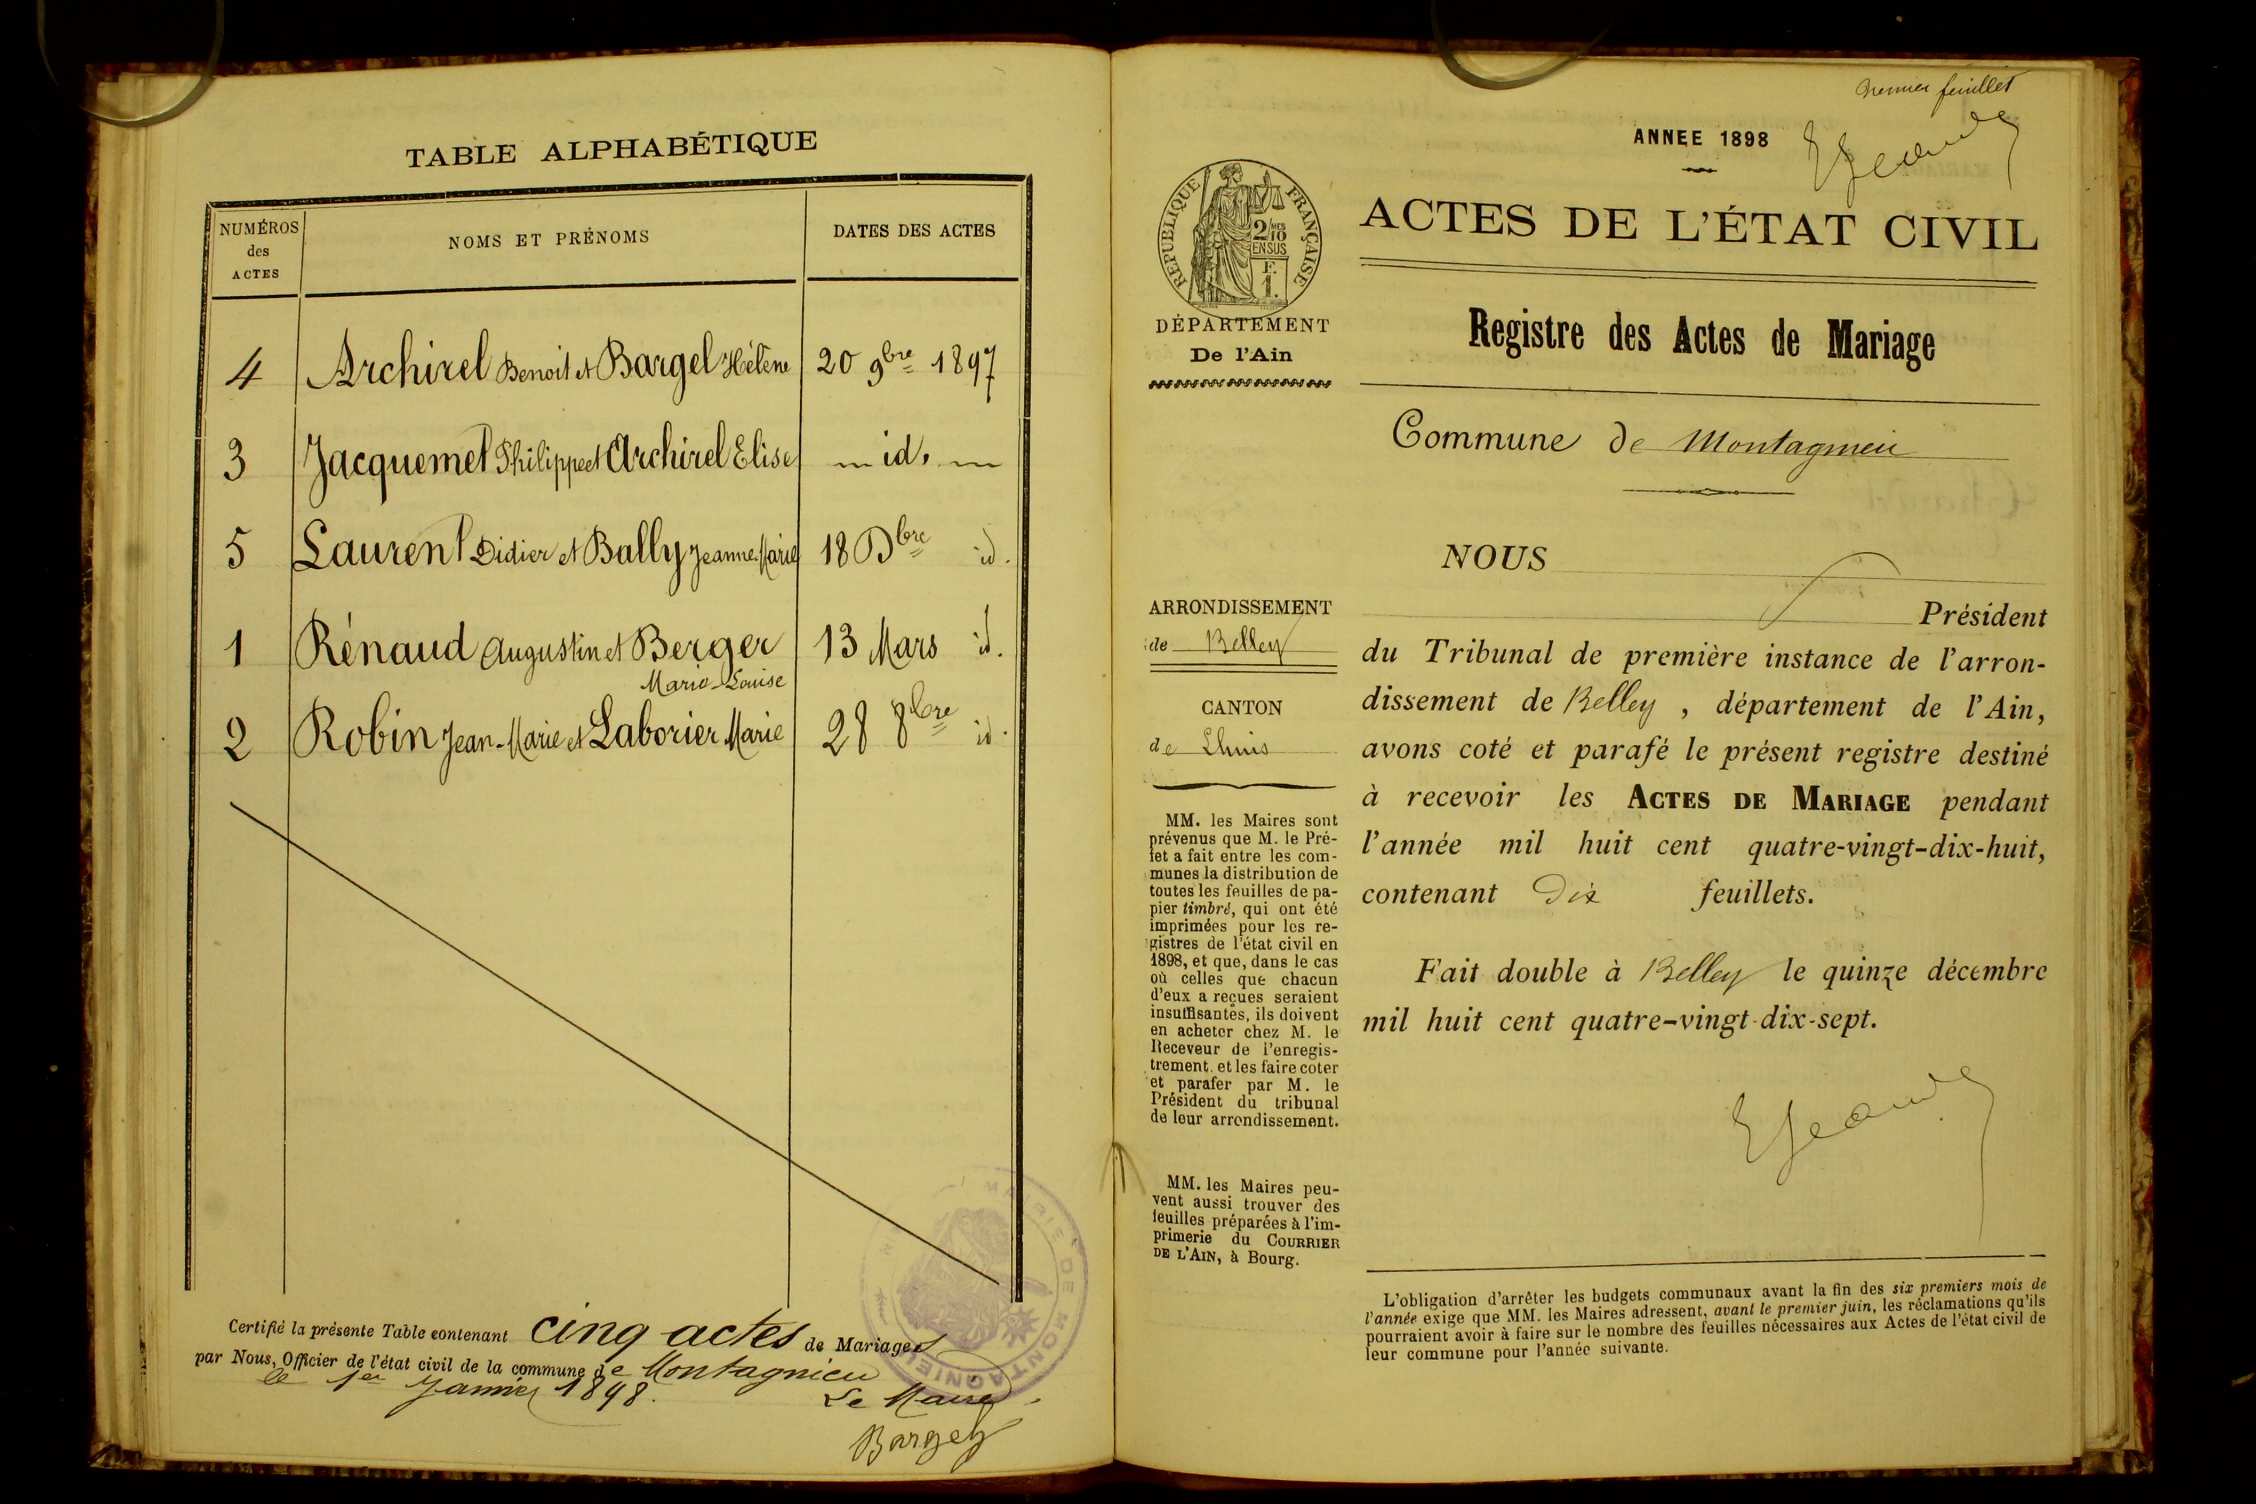 TABLE ALPHABÉTIQUE
NUMÉROS
des
ACTES
NOMS ET PRÉNOMS
DATES DES ACTES
4 Archirel Benoit et Bargel Hélène 20 9bre 1897
3 Jacquemet Philippe et Archirel Elise id.
5 Laurent Didier et Bally Jeanne-Marie 18 Dbre id.
1 Rénaud Augustin et Berger 13 Mars id.
Marie-Louise
2 Robin Jean-Marie et Laborier Marie 28 8bre id.
Certifié la présente Table contenant cinq actes de Mariages
par Nous, Officier de l'état civil de la commune de Montagnieu
le 1er Janvier 1898.
Le Maire,
MAIRIE DE MONTAGNIEU
premier feuillet
ANNEE 1898
RÉPUBLIQUE FRANÇAISE
2/10MES
EN SUS
F.
1.
ACTES DE L'ÉTAT CIVIL
Registre des Actes de Mariage
DÉPARTEMENT
De l'Ain
Commune de Montagnieu
NOUS
Président
du Tribunal de première instance de l'arron-
dissement de Belley, département de l'Ain,
avons coté et parafé le présent registre destiné
à recevoir les ACTES DE MARIAGE pendant
l'année mil huit cent quatre-vingt-dix-huit,
contenant Dix feuillets.
Fait double à Belley le quinze décembre
mil huit cent quatre-vingt-dix-sept.
ARRONDISSEMENT
de Belley
CANTON
de Lhuis
MM. les Maires sont
prévenus que M. le Pré-
fet a fait entre les com-
munes la distribution de
toutes les feuilles de pa-
pier timbré, qui ont été
imprimées pour les re-
gistres de l'état civil en
1898, et que, dans le cas
où celles que chacun
d'eux a reçues seraient
insuffisantes, ils doivent
en acheter chez M. le
Receveur de l'enregis-
trement, et les faire coter
et parafer par M. le
Président du tribunal
de leur arrondissement.
MM. les Maires peu-
vent aussi trouver des
feuilles préparées à l'im-
primerie du COURRIER
DE L'AIN, à Bourg.
L'obligation d'arrêter les budgets communaux avant la fin des six premiers mois de
l'année exige que MM. les Maires adressent, avant le premier juin, les réclamations qu'ils
pourraient avoir à faire sur le nombre des feuilles nécessaires aux Actes de l'état civil de
leur commune pour l'année suivante.